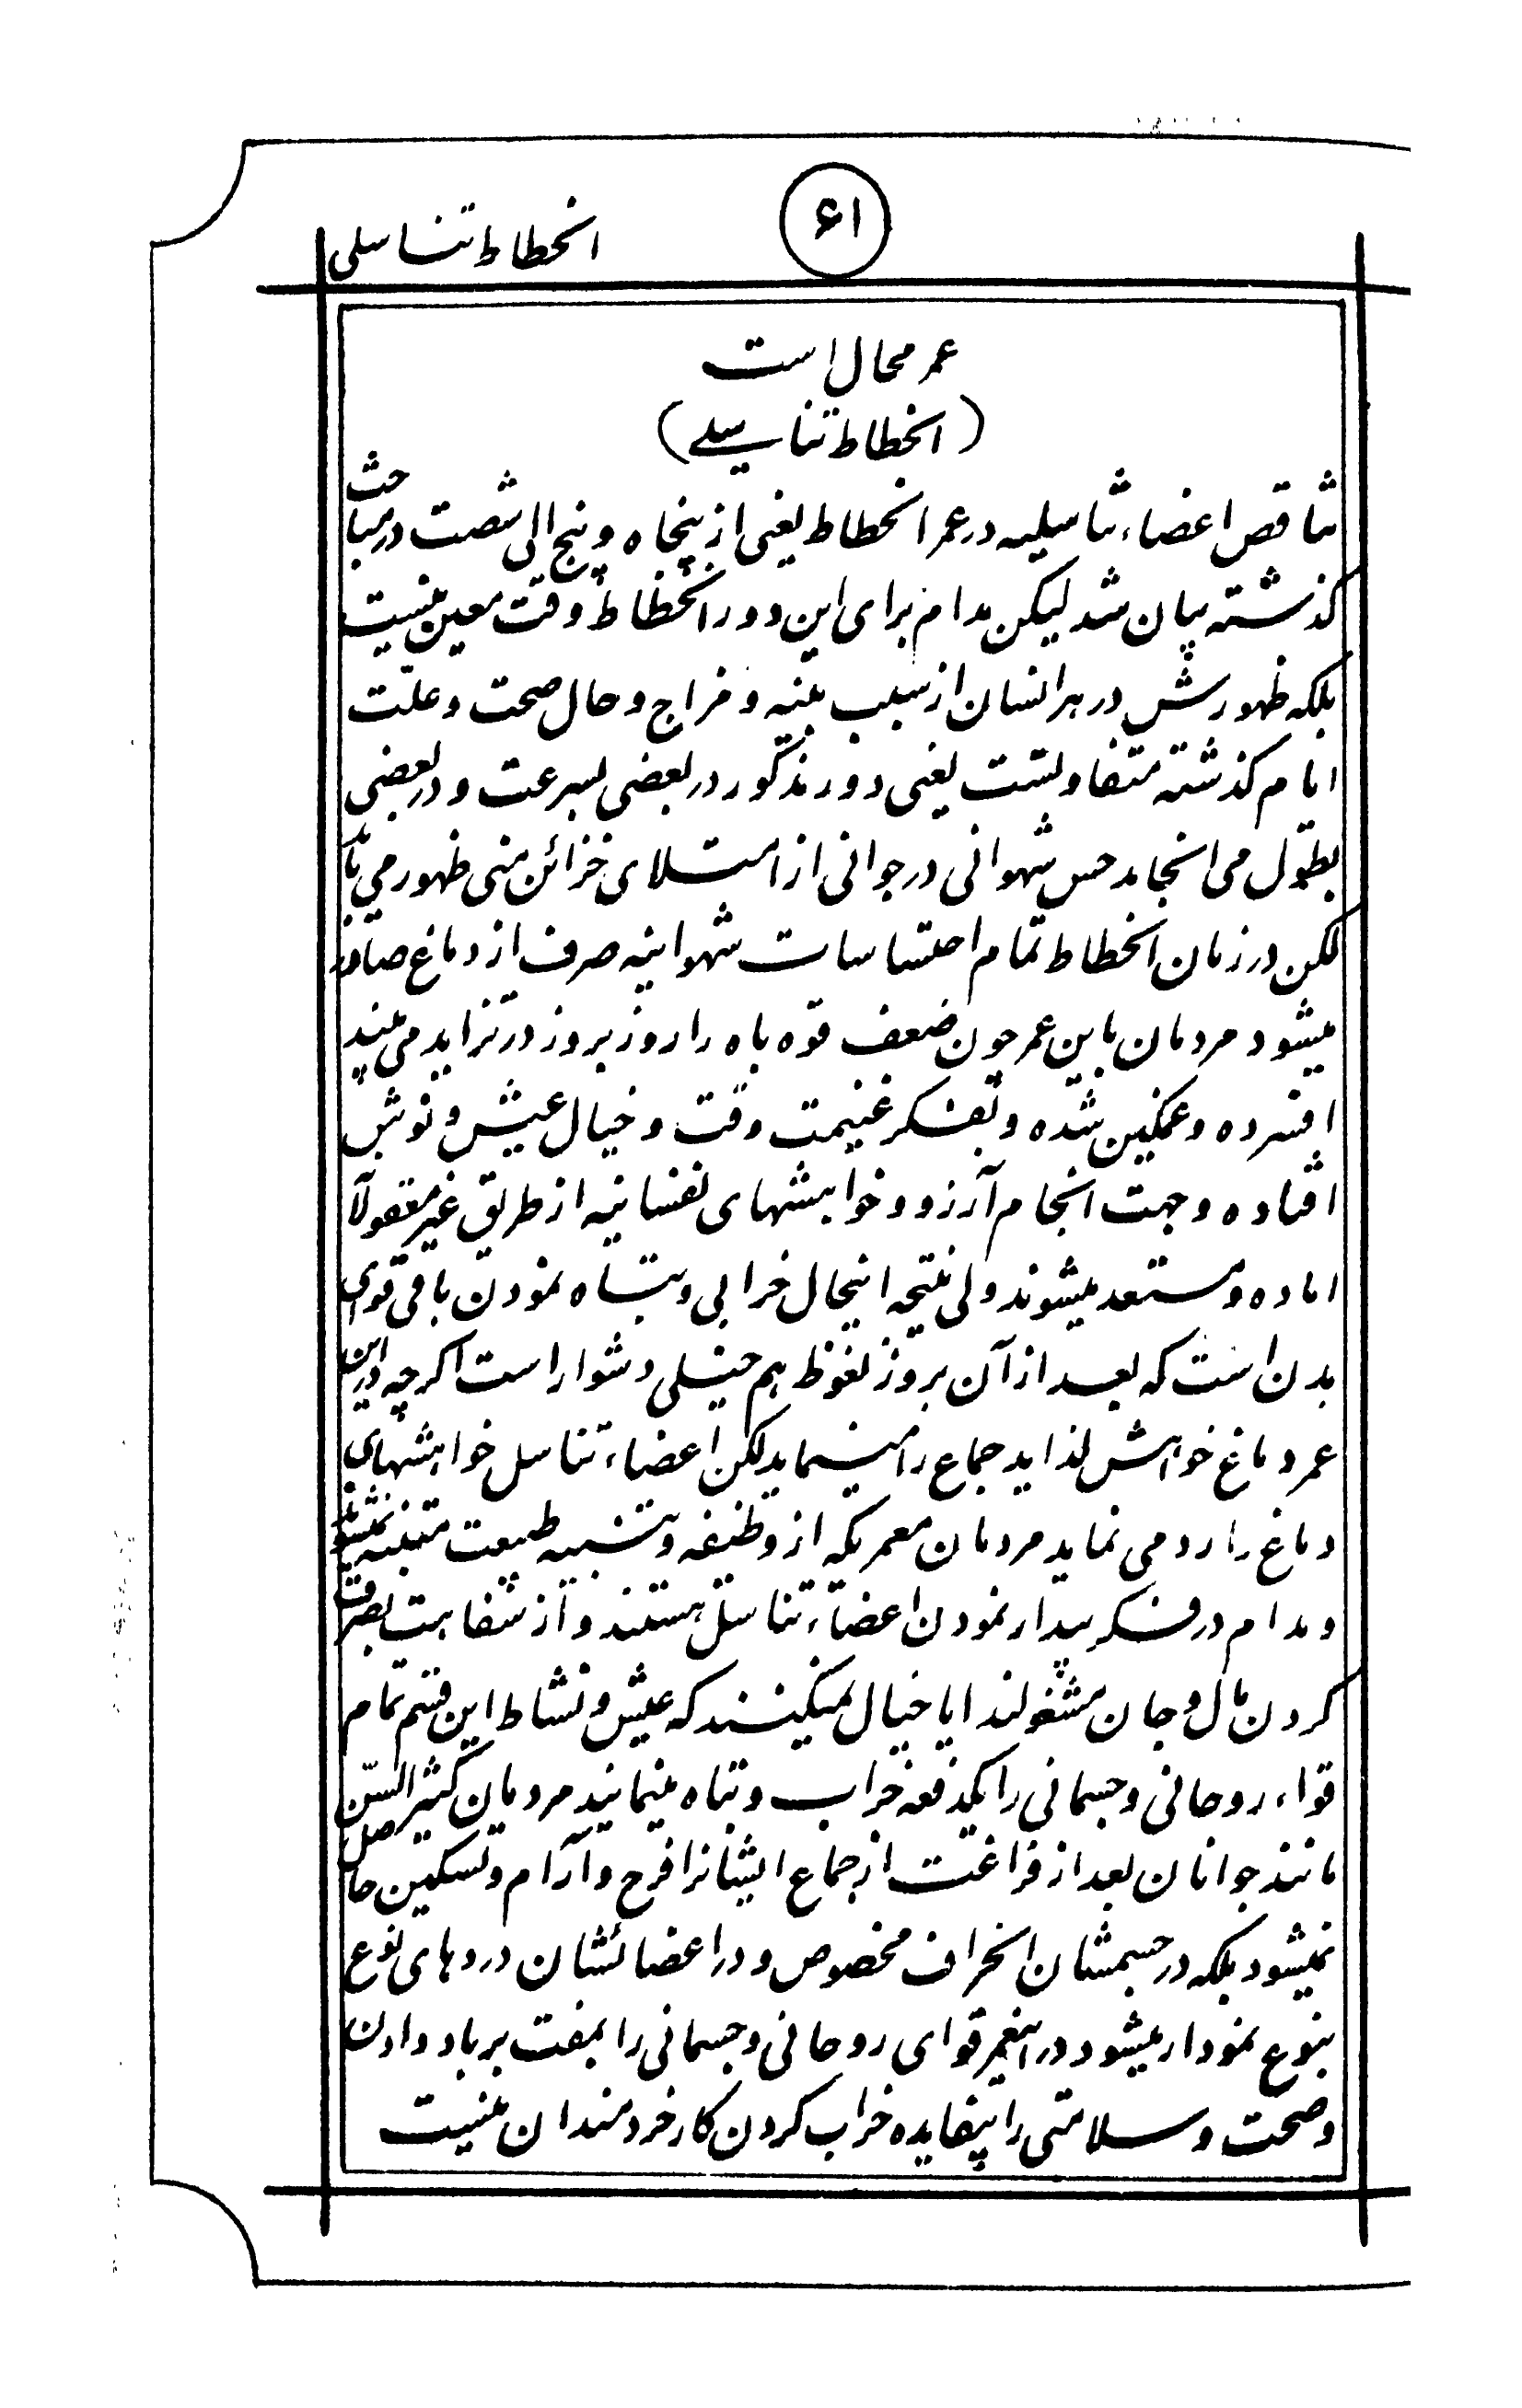 ۶۱
انحطاط تناسلی
عمر محال است
(انحطاط تناسلے)
تناقص اعضاء تناسلیه در عمر انحطاط یعنی از پنجاه و پنج الی شصت در مباحث
گذشته بیان شد لیکن مدام برای این دور انحطاط وقت معین نیست
بلکه ظهورش در هر انسان از سبب بنیه و مزاج و حال صحت و علّت
ایام گذشته متفاوتست یعنی دور مذکور در بعضی بسرعت و در بعضی
بطول می انجامد حس شهوانی در جوانی از امتلای خزائن منی ظهور می یابد
لکن در زمان انحطاط تمام احتساسات شهوانیه صرف از دماغ صادر
میشود مردمان باین عمر چون ضعف قوه باه را روز بروز در تزاید می بیند
افسرده و غمگین شده و بفکر غنیمت وقت و خیال عیش و نوش
افتاده وجهت انجام آرزو و خواهشهای نفسانیه از طریق غیر معقول
اماده و مستعد میشوند ولی نتیجه اینحال خرابی و تباه نمودن باقی قوای
بدن است که بعد از آن بروز نغوظ هم خیلی دشوار است اگرچه در این
عمر دماغ خواهش لذاید جماع را مینماید لکن اعضاء تناسل خواهشهای
دماغ را رد می نماید مردمان معمریکه از وظیفه و تنبیه طبیعت متنبه نمیشوند
و مدام در فکر بیدار نمودن اعضاء تناسل هستند و از شفاهت بصرف
کردن مال و جان مشغولند ایا خیال نمیکینند که عیش و نشاط این قسم تمام
قواء روحانی و جسمانی را یکدفعه خراب و تباه مینمایند مردمان کثیر السّن
مانند جوانان بعد از فراغت از جماع ایشانرا فرح و آرام و تسکین حاصل
نمیشود بلکه در جسمشان انحراف مخصوص و در اعضائشان دردهای نوع
بنوع نمودار میشود در اینعمر قوای روحانی و جسمانی را بمفت بر باد دادن
و صحت و سلامتی را بیفایده خراب کردن کار خردمندان نیست